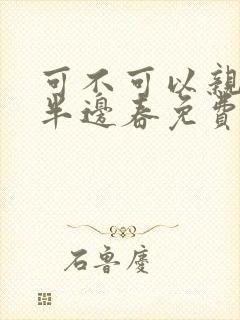 可不可以親
半邊春免費
石魯慶